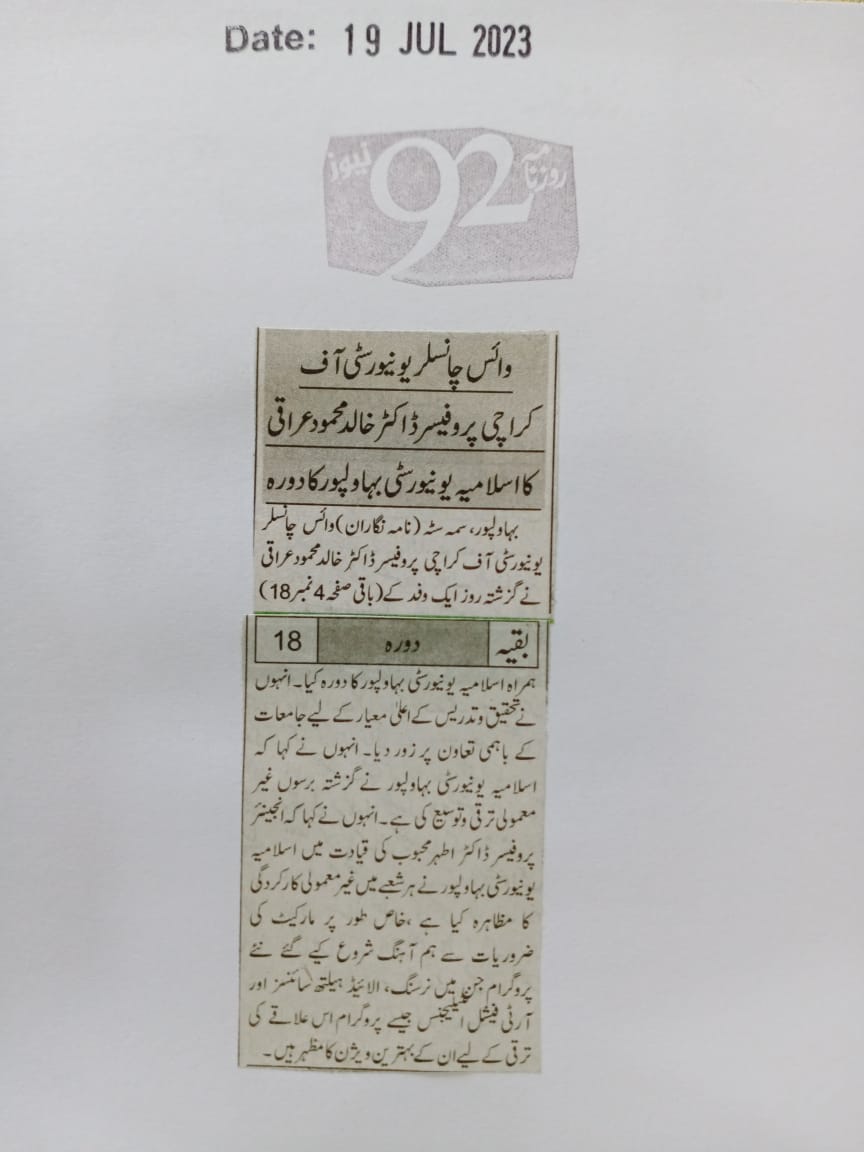 Date: 19 JUL 2023
روزنامہ 92 نیوز
وائس چانسلر یونیورسٹی آف
کراچی پروفیسر ڈاکٹر خالد محمود عراقی
کا اسلامیہ یونیورسٹی بہاولپور کا دورہ
بہاولپور، سمہ سٹہ (نامہ نگاران) وائس چانسلر
یونیورسٹی آف کراچی پروفیسر ڈاکٹر خالد محمود عراقی
نے گزشتہ روز ایک وفد کے (باقی صفحہ 4 نمبر 18)
بقیہ دورہ 18
ہمراہ اسلامیہ یونیورسٹی بہاولپور کا دورہ کیا۔ انہوں
نے تحقیق و تدریس کے اعلیٰ معیار کے لیے جامعات
کے باہمی تعاون پر زور دیا۔ انہوں نے کہا کہ
اسلامیہ یونیورسٹی بہاولپور نے گزشتہ برسوں غیر
معمولی ترقی و توسیع کی ہے۔ انہوں نے کہا کہ انجینئر
پروفیسر ڈاکٹر اطہر محبوب کی قیادت میں اسلامیہ
یونیورسٹی بہاولپور نے ہر شعبے میں غیر معمولی کارکردگی
کا مظاہرہ کیا ہے ،خاص طور پر مارکیٹ کی
ضروریات سے ہم آہنگ شروع کیے گئے نئے
پروگرام جن میں نرسنگ، الائیڈ ہیلتھ سائنسز اور
آرٹی فیشل انٹیلیجنس جیسے پروگرام اس علاقے کی
ترقی کے لیے ان کے بہترین ویژن کا مظہر ہیں۔